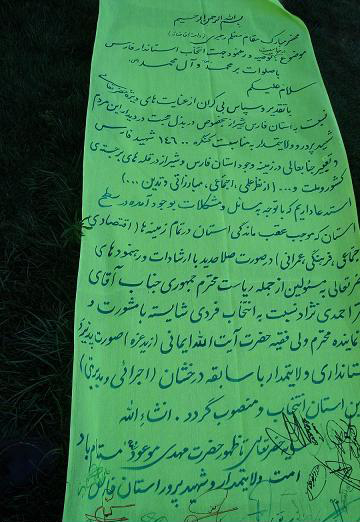 بسم الله الرحمن الرحیم
محضر مبارک مقام معظم رهبری
موضوع: توصیه و رهنمود جهت انتخاب استاندار فارس
با صلوات بر محمد و آل محمد (ص)
سلام علیکم
با تقدیر و سپاس بی کران از عنایت های ویژه
نسبت به استان فارس شیراز بخصوص در بذل محبت در دیدار این مردم
شهید پرور و ولایتمدار به مناسبت کنگره ۱۴۶۰۰ شهید فارس
و تعبیر جنابعالی در زمینه وجود استان فارس و شیراز در قله های برجسته ی
کشور و ملت و... (از نظر علمی، اجتماعی، مبارزاتی و تدین ...)
استدعا داریم که با توجه به مسائل و مشکلات بوجود آمده در سطح
استان که موجب عقب ماندگی استان در تمام زمینه ها (اقتصادی
اجتماعی، فرهنگی، عمرانی) در صورت صلاحدید با ارشادات و رهنمودهای
به مسئولین از جمله ریاست محترم جمهوری جناب آقای
احمدی نژاد نسبت به انتخاب فردی شایسته با مشورت و
نماینده محترم ولی فقیه حضرت آیت الله ایمانی صورت پذیرد
استانداری ولایتمدار با سابقه درخشان (اجرائی و مدیریتی)
این استان انتخاب و منصوب گردد. انشاءالله
تا ظهور حضرت مهدی موعود (عج) مستدام باد
امت ولایتمدار و شهید پرور استان فارس